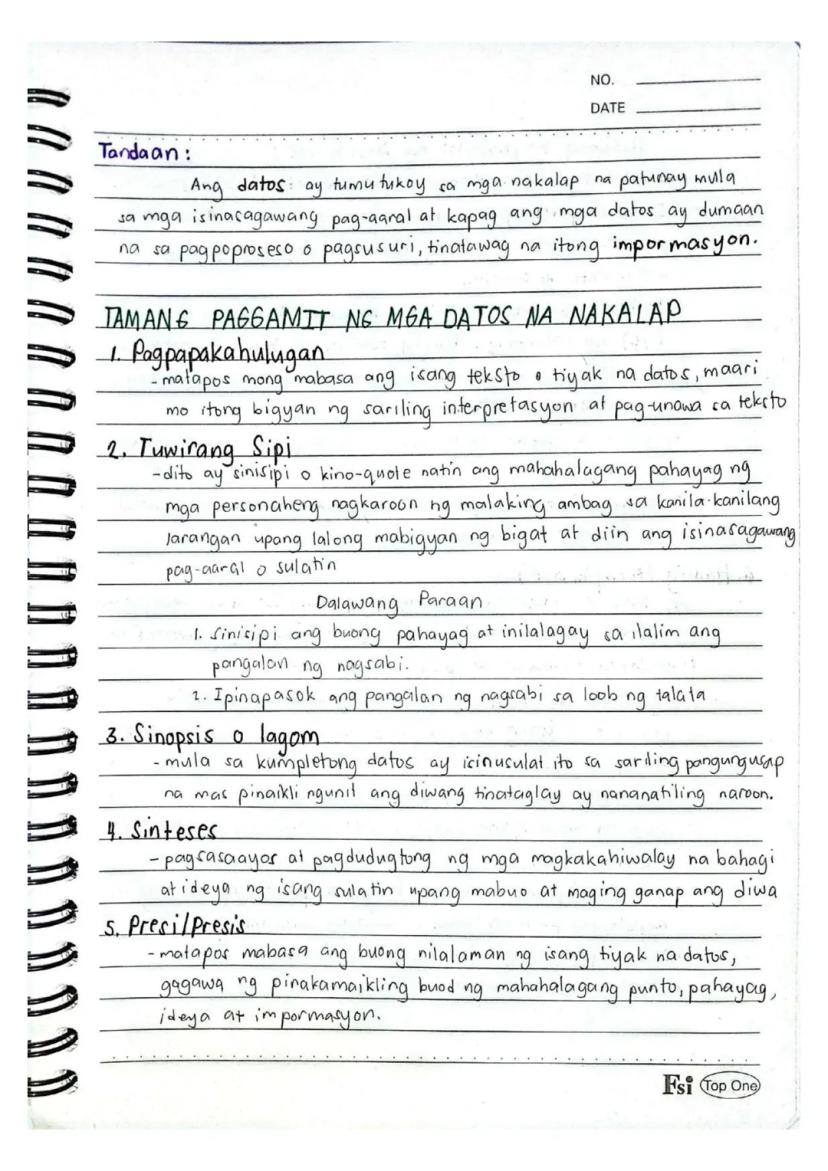 NO.
DATE
Tandaan:
Ang datos ay tumutukoy sa mga nakalap na patunay mula
sa mga isinasagawang pag-aaral at kapag ang mga datos ay dumaan
na sa pagpoproseso o pagsusuri, tinatawag na itong impormasyon.
TAMANG PAGGAMIT NG MGA DATOS NA NAKALAP
1. Pagpapakahulugan
- matapos mong mabasa ang isang teksto o tiyak na datos, maari
mo itong bigyan ng sariling interpretasyon at pag-unawa sa teksto
2. Tuwirang Sipi
- dito ay sinisipi o kino-quote natin ang mahahalagang pahayag ng
mga personaheng nagkaroon ng malaking ambag sa kanila-kanilang
larangan upang lalong mabigyan ng bigat at diin ang isinasagawang
pag-aaral o sulatin
Dalawang Paraan
1. Sinisipi ang buong pahayag at inilalagay sa ilalim ang
pangalan ng nagsabi.
2. Ipinapasok ang pangalan ng nagsabi sa loob ng talata
3. Sinopsis o lagom
- mula sa kumpletong datos ay isinusulat ito sa sariling pangungusap
na mas pinaikli ngunit ang diwang tinataglay ay nananatiling naroon.
4. Sinteses
- pagsasaayos at pagdudugtong ng mga magkakahiwalay na bahagi
at ideya ng isang sulatin upang mabuo at maging ganap ang diwa
5. Presil/Presis
- matapos mabasa ang buong nilalaman ng isang tiyak na datos,
gagawa ng pinakamaikling buod ng mahahalagang punto, pahayag,
ideya at impormasyon.
Fsi Top One